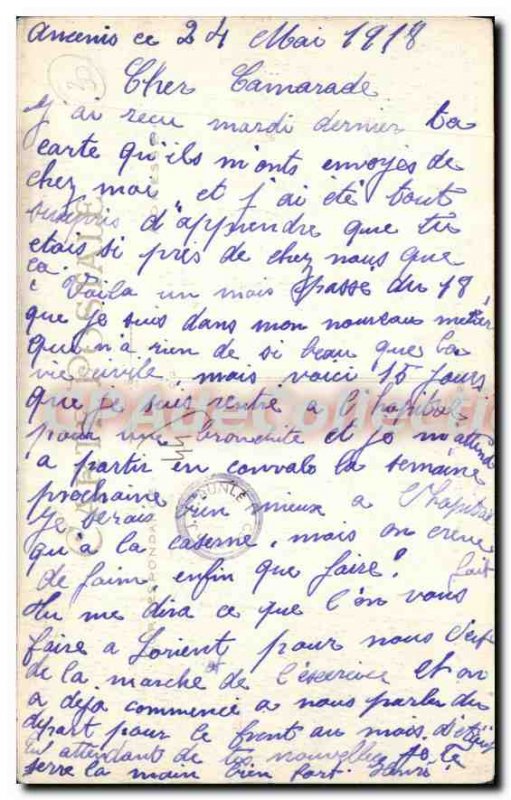 Ancenis ce 24 Mai 1918
Cher Camarade
J'ai recu mardi dernier ta
carte qu'ils m'onts envoyés de
chez moi et j'ai été tout
surpris d'apprendre que tu
etais si près de chez nous que
ca. Voila un mois passé du 18
que je suis dans mon nouveau metier
qui n'a rien de si beau que la
vie civile, mais voici 15 jours
que je suis rentré a l'hopital
pour une bronchite et je m'attend
a partir en convalo la semaine
prochaine
Je serais bien mieux a l'hopital
qu'à la caserne, mais on creve
de faim, enfin que faire!
tu me dira ce que l'on vous fait
faire a Lorient pour nous c'est
de la marche et de l'exercice et on
a deja commencé a nous parler du
départ pour le front au mois
En attendant de tes nouvelles je te
serre la main bien fort.
CARTE POSTALE
CORRESPONDANCE